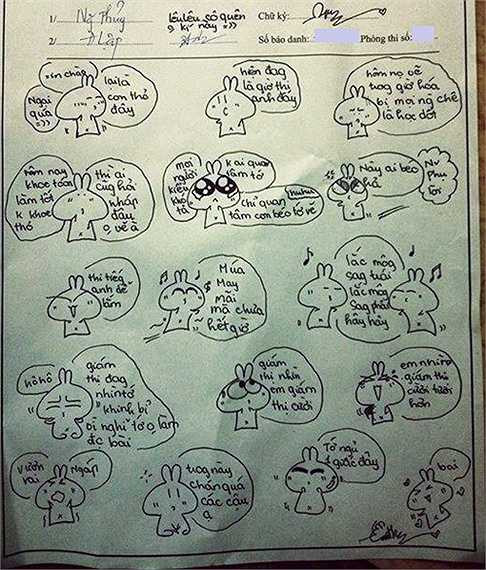 1/ Nợ Thủy
lêulêu sô quên
kí này :>>
Chữ ký:
2/ Đ Lập
Số báo danh:
Phòng thi số:
xin chào
Ngại quá :>>
lại là
con thỏ
đây
hiện đag
là giờ thi
anh đấy
hôm nọ vẽ
trog giờ hóa
bị mọi ng chê
là học dốt
hôm nay
khoe toán
làm tốt
k khoe
thó
thì ai
cũg hỏi
nháp
đâu
o vẽ à
mọi
người
kiểu
khó
tả
k ai quan
tâm tớ
huhu
chỉ quan
tâm con béo tớ vẽ
Này ai béo
hả
Nv
Phụ
lời
thi tiếg
anh dễ
lắm
Múa
May
Mãi
mà chưa
hết giờ
lắc môg
sag trái
lắc môg
sag phải
hây hây
hô hô
giám
thị đag
nhìn tớ
khinh bỉ
vì nghĩ tớ o làm
đc bài
giám
thị nhìn
em giám
thị cười
em nhìn
giám thị
cười tươi
hơn
vươn
vai
Ngáp
trog này
chán quá
các cậu
ạ
Tớ ngủ
giấc đây
bai